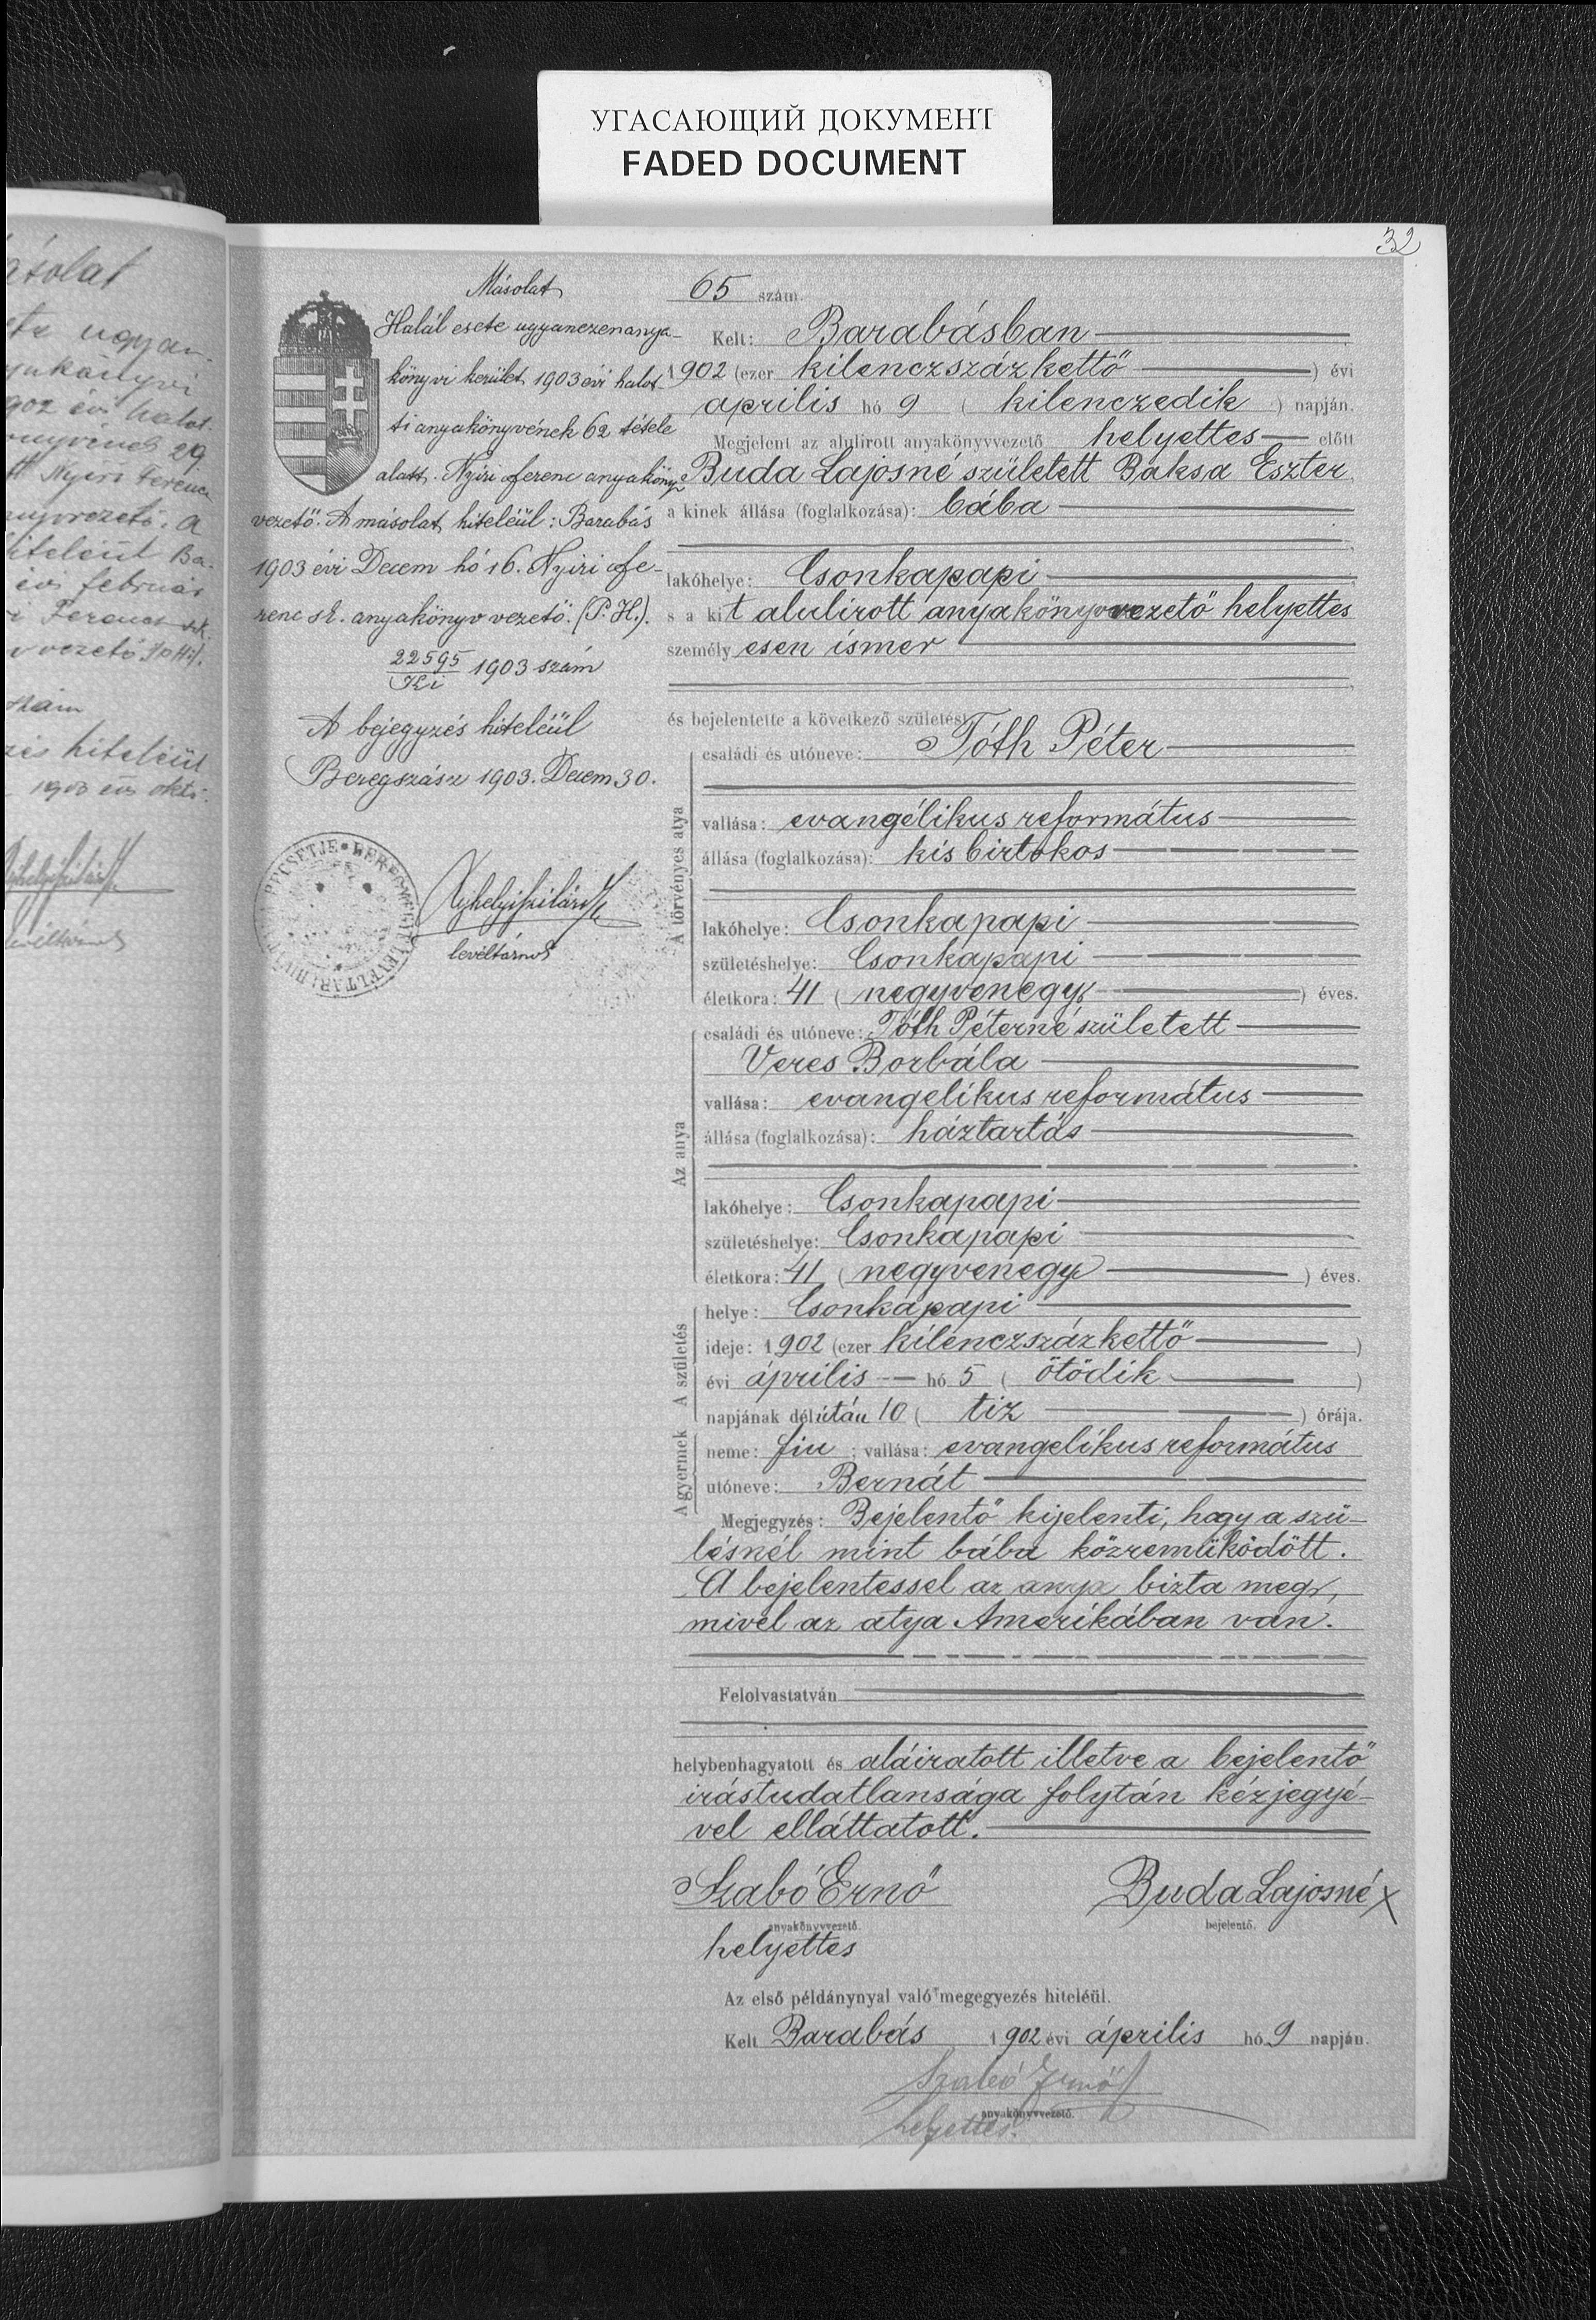 УГАСАЮЩИЙ ДОКУМЕНТ
FADED DOCUMENT
32
ugyan
902 évi halot
29
Nyíri Ferencz
a
hiteléül Ba-
évi február
Ferencz sk.
vezető
hiteléül
Másolat
Halál esete ugyanezen anya-
könyvi kerület 1903 évi halot-
ti anyakönyvének 62 tétele
alatt. Nyiri Ferenc anyaköny-
vezető. A másolat hiteléül: Barabás
1903 évi Decem hó 16. Nyiri Fe-
renc sk. anyakönyv vezető. (P.H.).
22595
Ki 1903 szám
A bejegyzés hiteléül
Beregszász 1903. Decem 30.
levéltárnok
65 szám.
Kelt: Barabásban
1902 (ezer kilenczszázkettő) évi
április hó 9 (kilenczedik) napján.
Megjelent az alulirott anyakönyvvezető helyettes előtt
Buda Lajosné született Baksa Eszter,
a kinek állása (foglalkozása): bába
lakóhelye: Csonkapapi
s a kit alulirott anyakönyvvezető helyettes
személyesen ismer
és bejelentette a következő születést:
A törvényes atya
családi és utóneve: Tóth Péter
vallása: evangélikus református
állása (foglalkozása): kis birtokos
lakóhelye: Csonkapapi
születéshelye: Csonkapapi
életkora: 41 (negyvenegy) éves.
Az anya
családi és utóneve: Tóth Péterné született
Veres Borbála
vallása: evangelikus református
állása (foglalkozása): háztartás
lakóhelye: Csonkapapi
születéshelye: Csonkapapi
életkora: 41 (negyvenegy) éves.
A születés
helye: Csonkapapi
ideje: 1902 (ezer kilenczszázkettő)
évi április hó 5 (ötödik)
napjának délután 10 (tiz) órája.
A gyermek
neme: fiu; vallása: evangelikus református
utóneve: Bernát
Megjegyzés: Bejelentő kijelenti, hogy a szü-
lésnél mint bába közreműködött.
A bejelentessel az anya bizta meg,
mivel az atya Amerikában van.
Felolvastatván
helybenhagyatott és aláiratott illetve a bejelentő
irástudatlansága folytán kézjegyé-
vel elláttatott.
Szabó Ernő Buda Lajosné X
anyakönyvvezető. bejelentő.
helyettes
Az első példánynyal való megegyezés hiteléül.
Kelt Barabás 1902 évi április hó 9 napján.
Szabó Ernő
anyakönyvvezető.
helyettes.